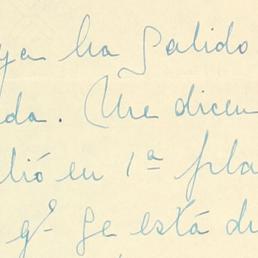 ya ha salido
da. Me dicen
lió en 1ª pla
qᵉ se está du